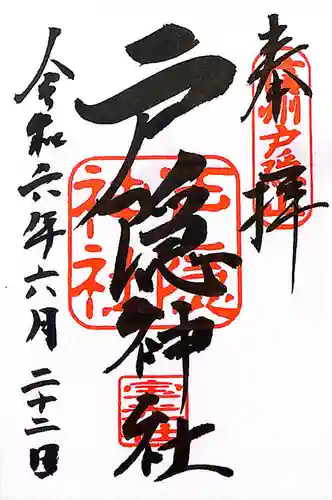 奉拝
戸隠神社
令和六年六月二十二日
戸隠
神社